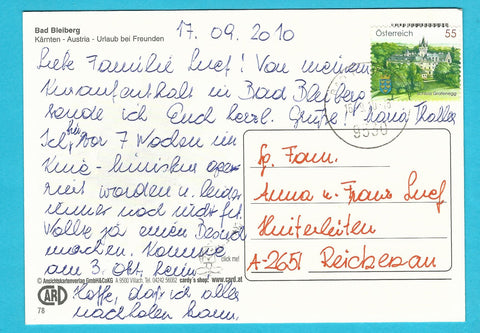 Bad Bleiberg
Kärnten - Austria - Urlaub bei Freunden
17.09.2010
Liebe Familie
Von meinem
Kuraufenthalt in Bad Bleiberg
sende ich Euch herzl. Grüße! Maria Thaller
Ich bin vor 7 Wochen im
Knie - operiert
worden u. leider
immer noch nicht fit.
Wollte ja einen Besuch
machen. Komme
am 3. Okt. heim
Hoffe, daß ich alles
nachholen kann.
Österreich 55
Schloss Grafenegg
9530
Sg. Fam.
Anna u. Franz
Hinterleiten
A-2651 Reichenau
click me!
© Ansichtskartenverlag GmbH&CoKG A 9500 Villach, Tel. 04242 56002 cardy's shop: www.card.at
CARD
78